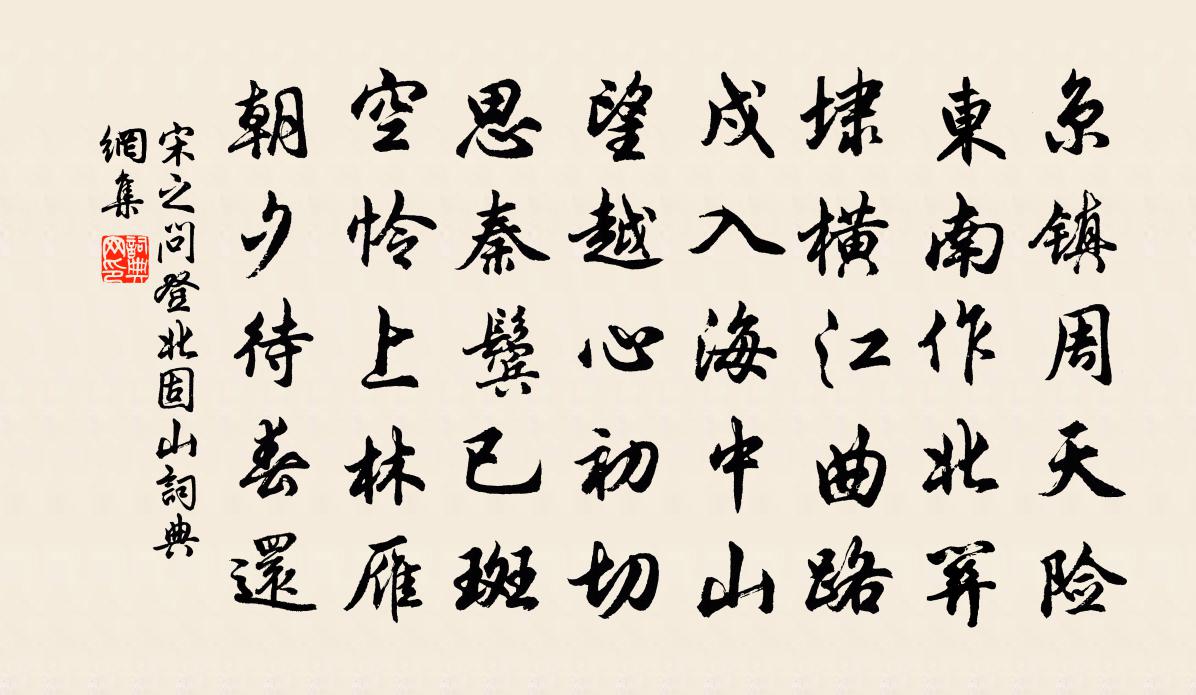 京镇周天险
東南作北關
埭橫江曲路
戍入海中山
望越心初切
思秦鬓已斑
空怜上林雁
朝夕待春還
宋之问登北固山詞典
網集
詞典
网印